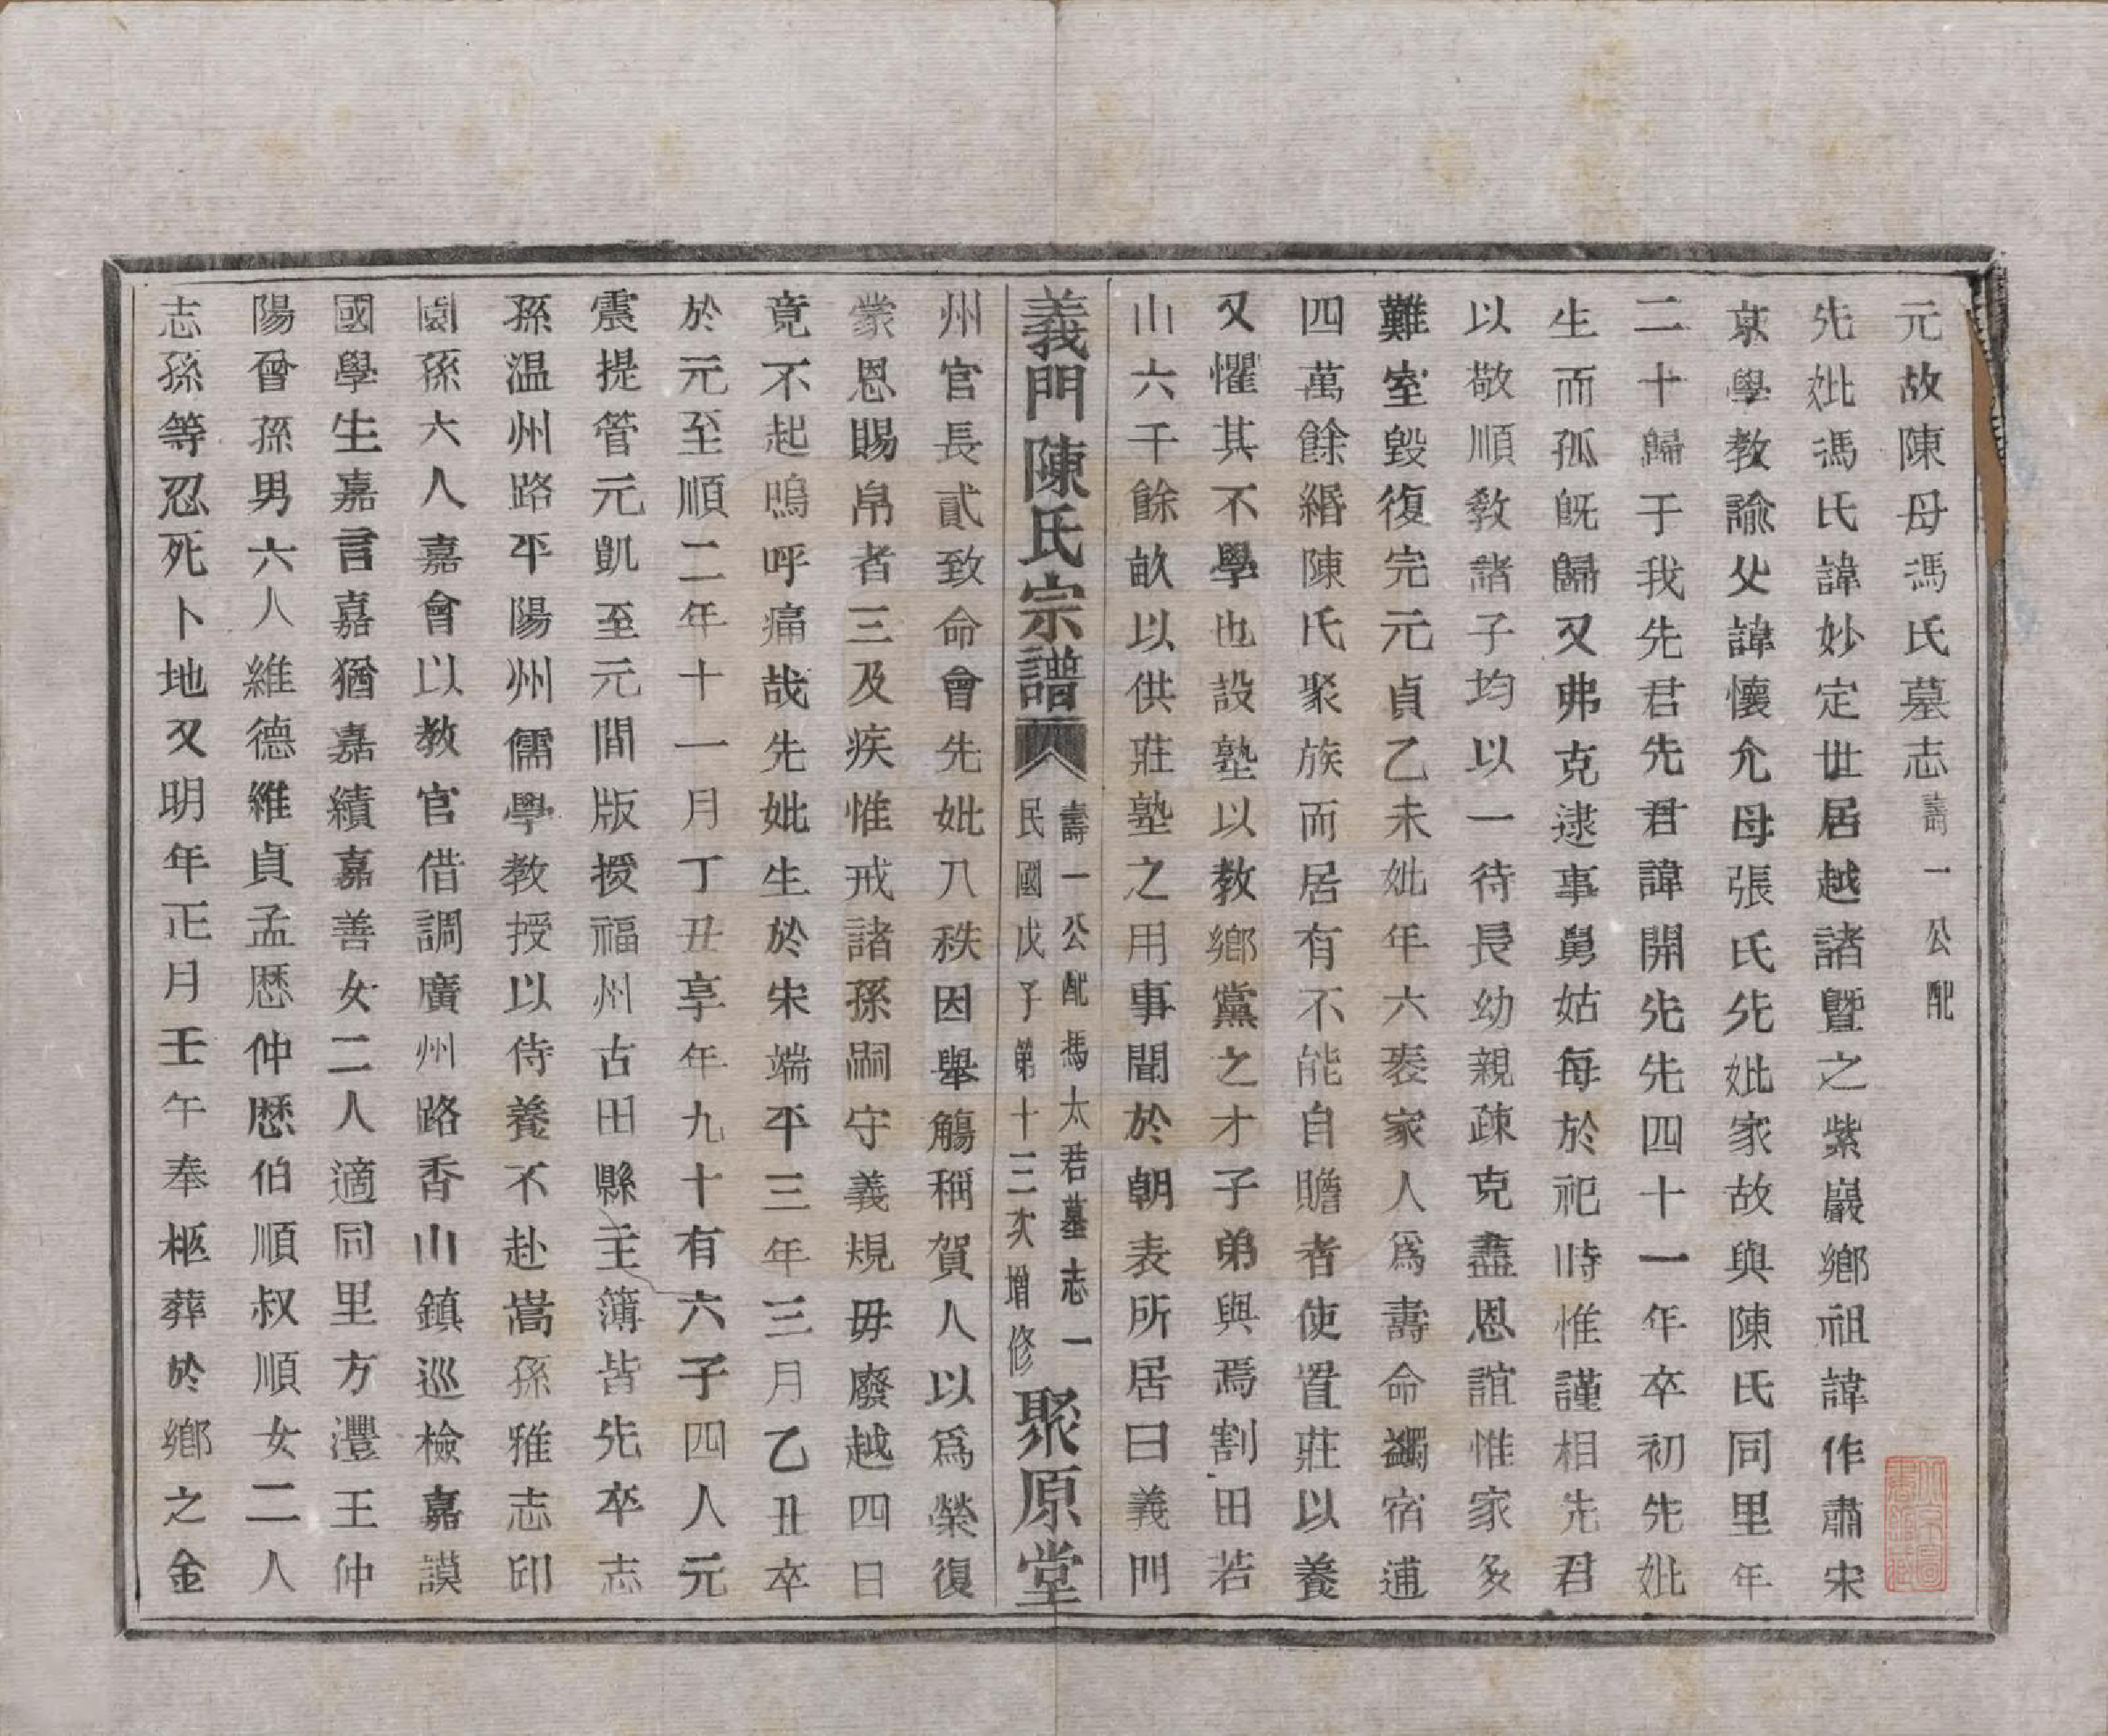 元故陳母馮氏墓志壽一公配
先妣馮氏諱妙定世居越諸暨之紫巖鄉祖諱作肅宋
京學教諭父諱懷允母張氏先妣家故與陳氏同里年
二十歸于我先君先君諱開先先四十一年卒初先妣
生而孤既歸又弗克逮事舅姑每於祀時惟謹相先君
以敬順教諸子均以一待長幼親疎克盡恩誼惟家多
難室毀復完元貞乙未妣年六袠家人爲壽命蠲宿逋
四萬餘緡陳氏聚族而居有不能自贍者使置莊以養
又懼其不學也設塾以教鄉黨之才子弟與焉割田若
山六千餘畝以供莊塾之用事聞於朝表所居曰義門
義門陳氏宗譜
壽一公配馮太君墓志一
民國戊子第十三次增修
聚原堂
州官長貳致命會先妣八秩因舉觴稱賀人以爲榮復
蒙恩賜帛者三及疾惟戒諸孫嗣守義規毋廢越四日
竟不起嗚呼痛哉先妣生於宋端平三年三月乙丑卒
於元至順二年十一月丁丑享年九十有六子四人元
震提管元凱至元間版授福州古田縣主簿皆先卒志
孫温州路平陽州儒學教授以侍養不赴嵩孫雅志邱
園孫六人嘉會以教官借調廣州路香山鎮巡檢嘉謨
國學生嘉言嘉猶嘉績嘉善女二人適同里方灃王仲
陽曾孫男六人維德維貞孟厯仲厯伯順叔順女二人
志孫等忍死卜地又明年正月壬午奉柩葬於鄉之金